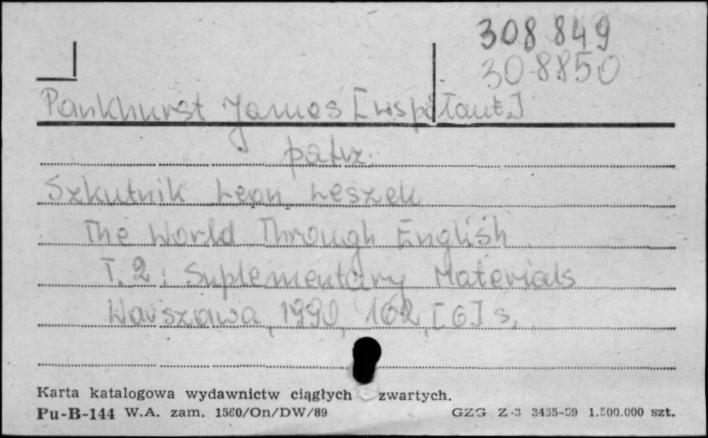 308 849
308850
Pankhurst James [współaut.]
patrz:
Szkutnik Leon Leszek
The World Through English
T. 2: Suplementary Materials
Warszawa, 1990, 102, [6] s.
Karta katalogowa wydawnictw ciągłych zwartych.
Pu-B-144 W.A. zam. 1560/On/DW/89 GZG Z-3 3435-89 1.500.000 szt.